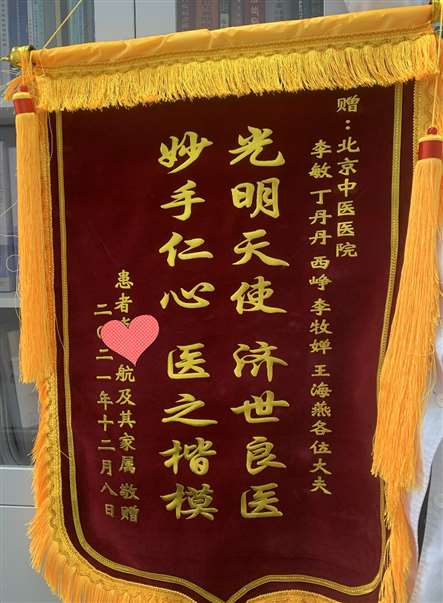 赠：北京中医医院
李敏 丁丹丹 西峥 李牧婵 王海燕各位大夫
光明天使 济世良医
妙手仁心 医之楷模
患者 航及其家属敬赠
二〇二一年十二月八日